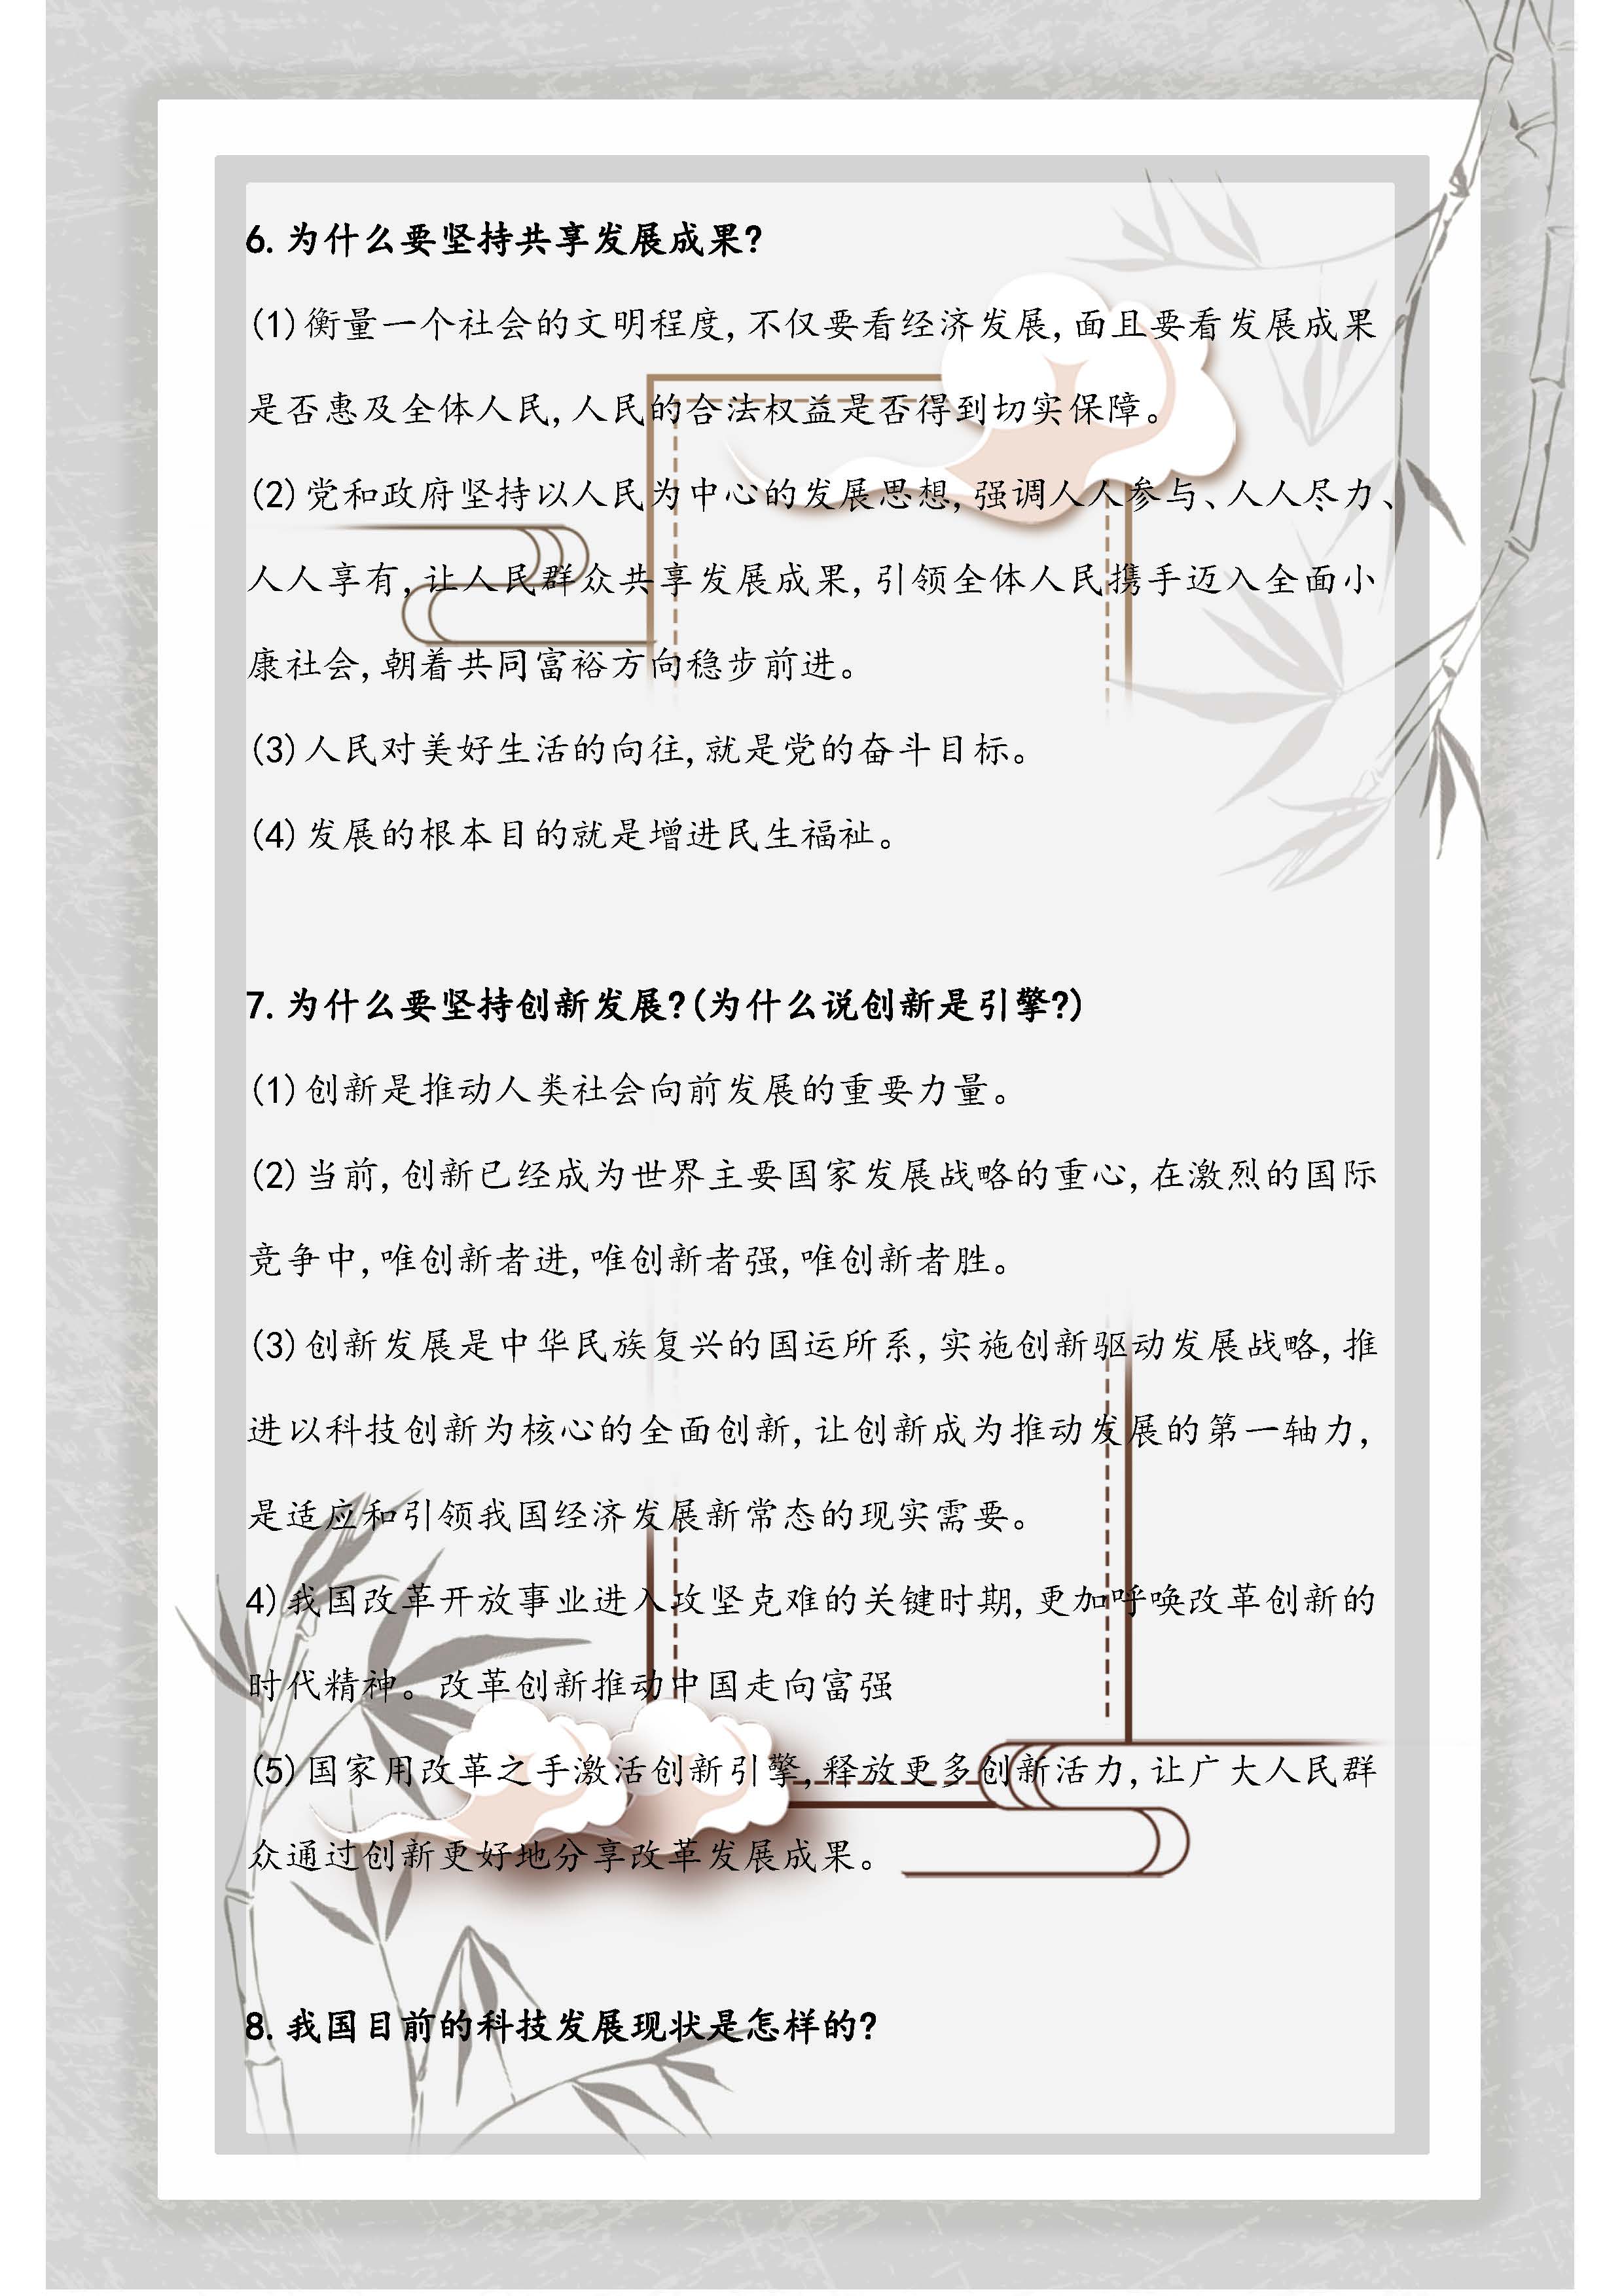 6. 为什么要坚持共享发展成果?
(1)衡量一个社会的文明程度,不仅要看经济发展,面且要看发展成果
是否惠及全体人民,人民的合法权益是否得到切实保障。
(2)党和政府坚持以人民为中心的发展思想,强调人人参与、人人尽力、
人人享有,让人民群众共享发展成果,引领全体人民携手迈入全面小
康社会,朝着共同富裕方向稳步前进。
(3)人民对美好生活的向往,就是党的奋斗目标。
(4)发展的根本目的就是增进民生福祉。
7. 为什么要坚持创新发展?(为什么说创新是引擎?)
(1)创新是推动人类社会向前发展的重要力量。
(2)当前,创新已经成为世界主要国家发展战略的重心,在激烈的国际
竞争中,唯创新者进,唯创新者强,唯创新者胜。
(3)创新发展是中华民族复兴的国运所系,实施创新驱动发展战略,推
进以科技创新为核心的全面创新,让创新成为推动发展的第一轴力,
是适应和引领我国经济发展新常态的现实需要。
4)我国改革开放事业进入攻坚克难的关键时期,更加呼唤改革创新的
时代精神。改革创新推动中国走向富强
(5)国家用改革之手激活创新引擎,释放更多创新活力,让广大人民群
众通过创新更好地分享改革发展成果。
8. 我国目前的科技发展现状是怎样的?